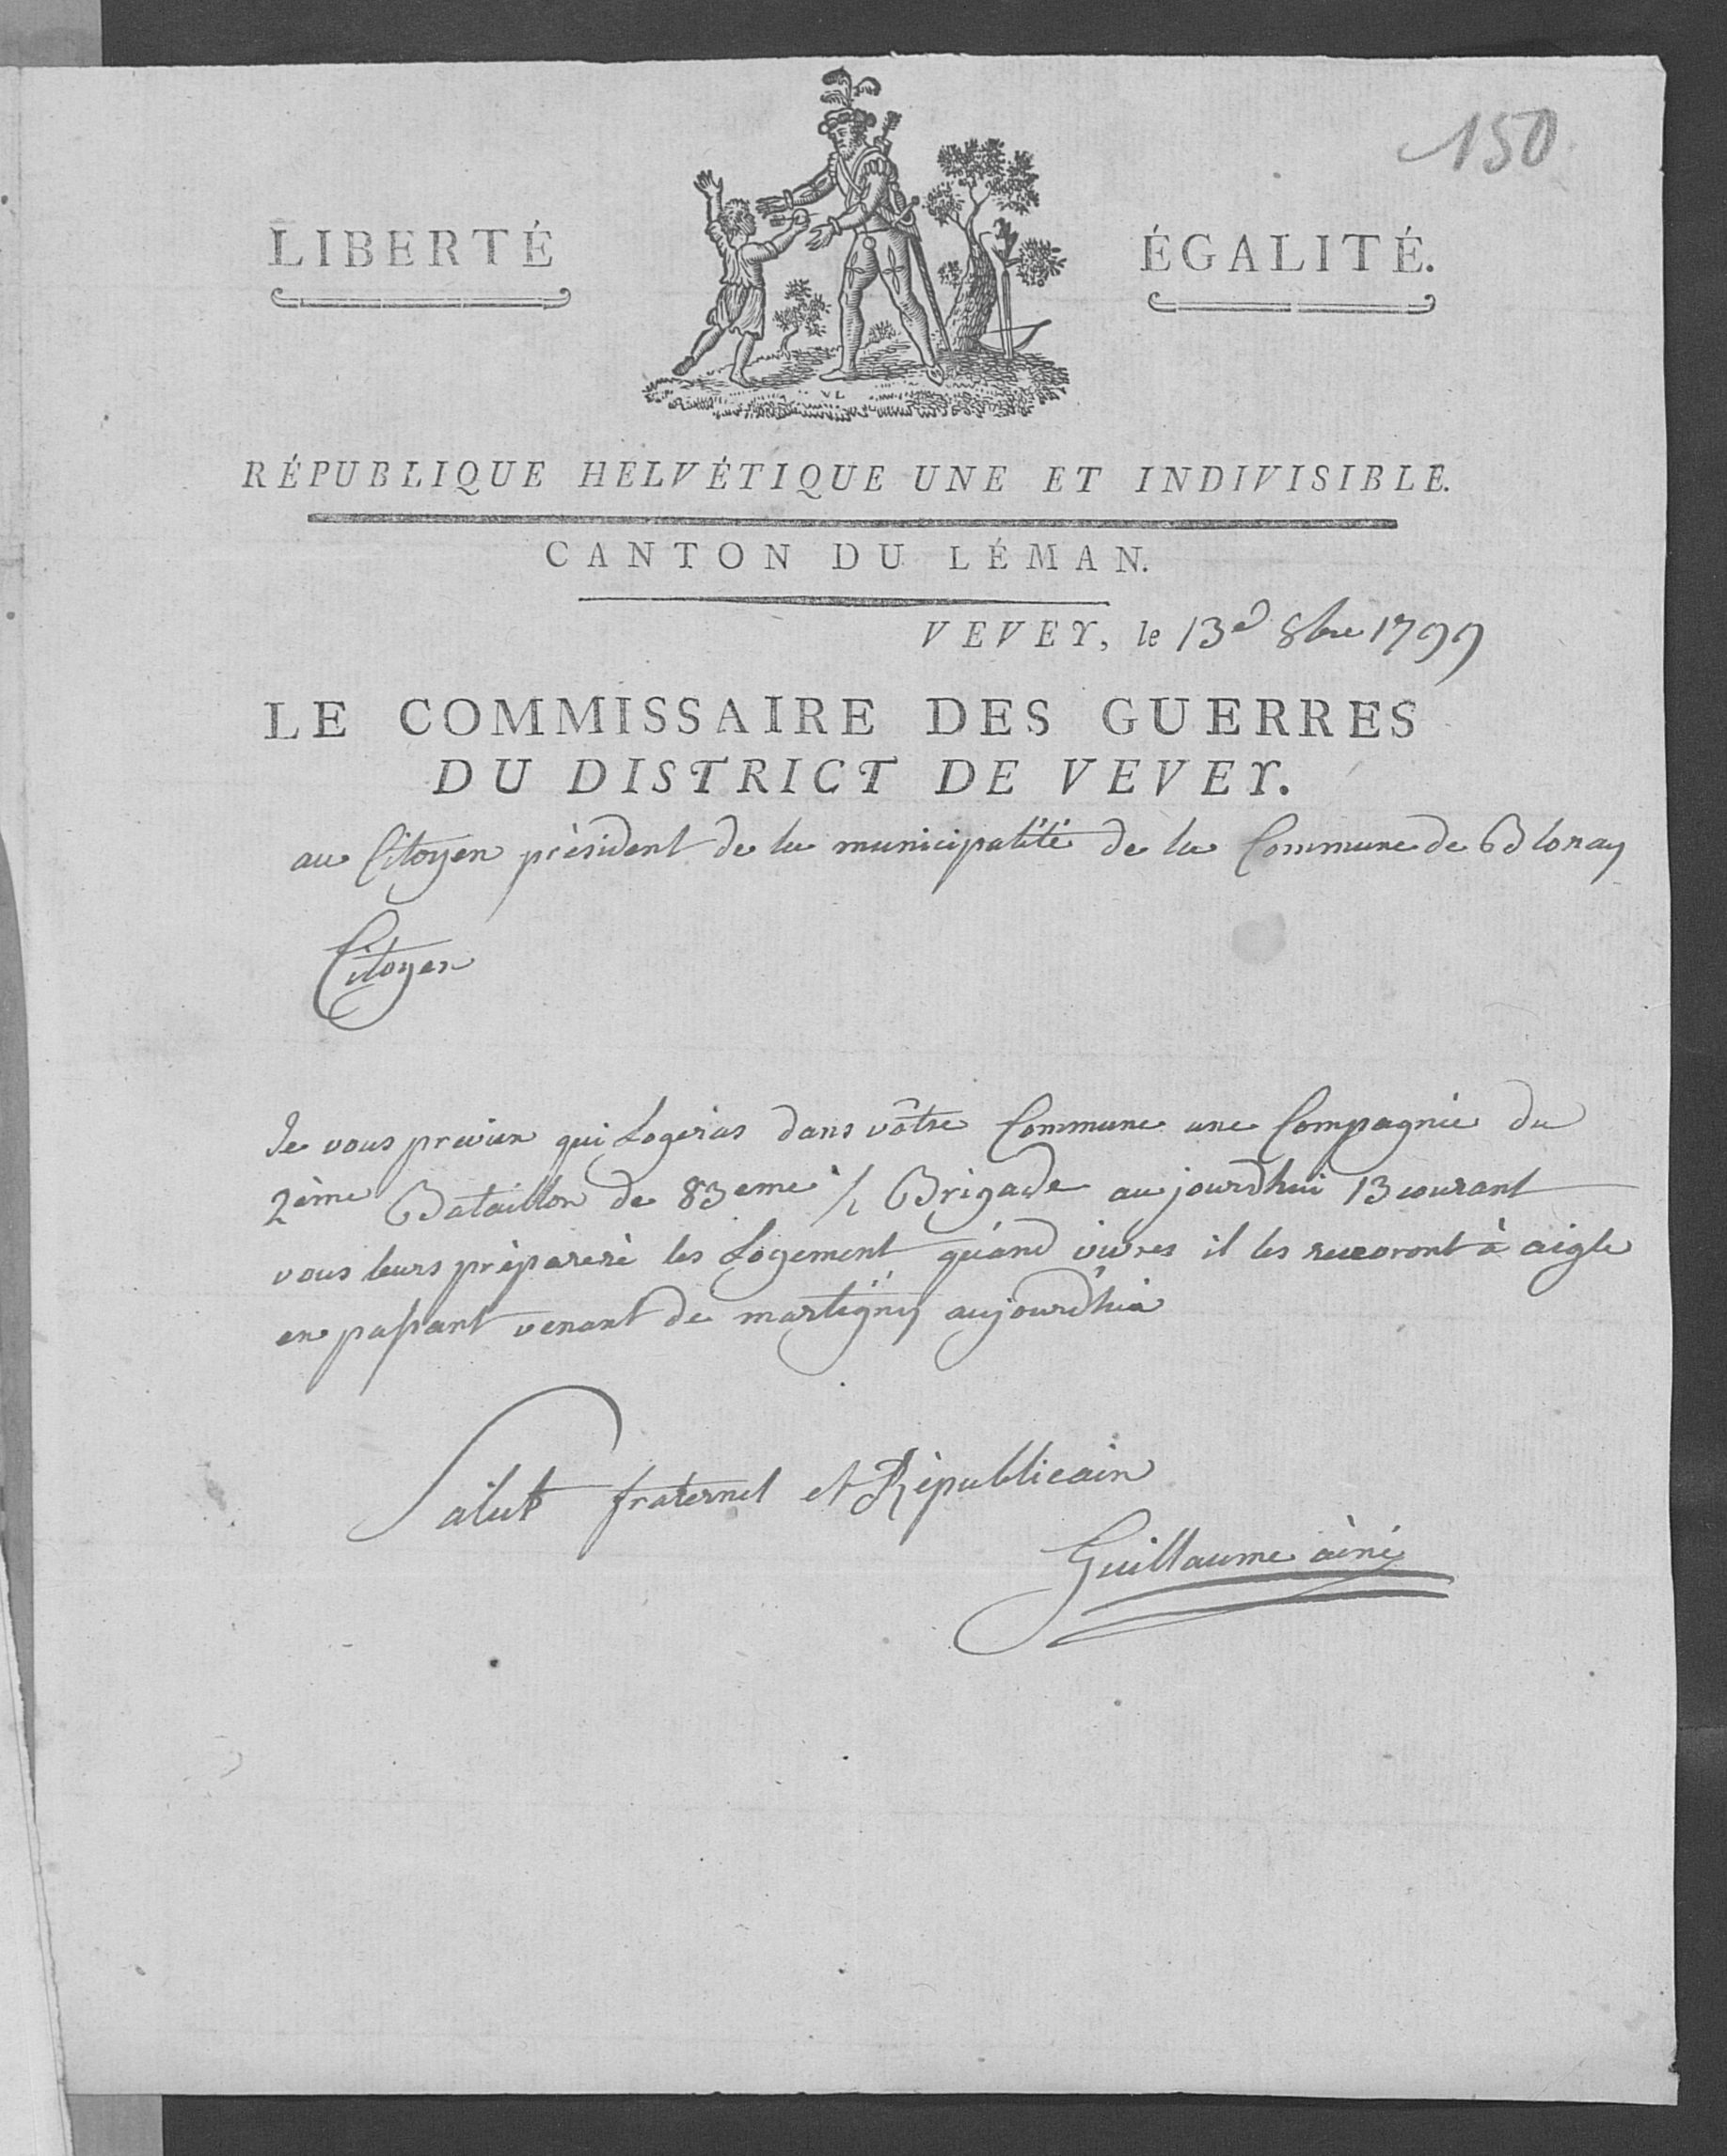 150
LIBERTÉ ÉGALITÉ.
VL
RÉPUBLIQUE HELVÉTIQUE UNE ET INDIVISIBLE.
CANTON DU LÉMAN.
VEVEY, le 13e 8bre 1799
LE COMMISSAIRE DES GUERRES
DU DISTRICT DE VEVEY.
au Citoyen président de la municipalité de la Commune de Blonay
Citoyen
Je vous previen qui Logeras dans vôtre Commune une Compagnie du
2ème Bataillon de 83eme ½ Brigade aujourdhui 13 courant
vous leurs prépareré les Logement quand vivres il les recevront à aigle
en passant venant de martigny aujourdhui
Salut fraternel et Républicain
Guillaume ainé